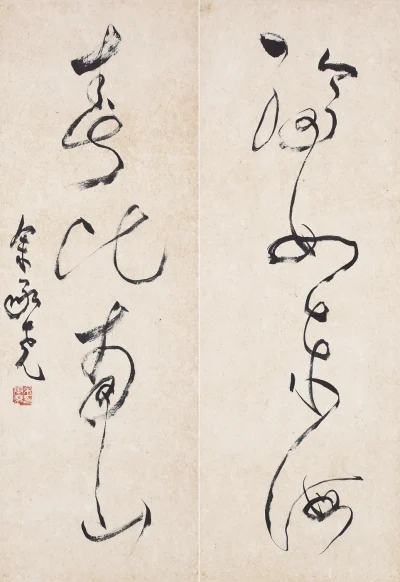 福如東海
壽比南山
余承堯